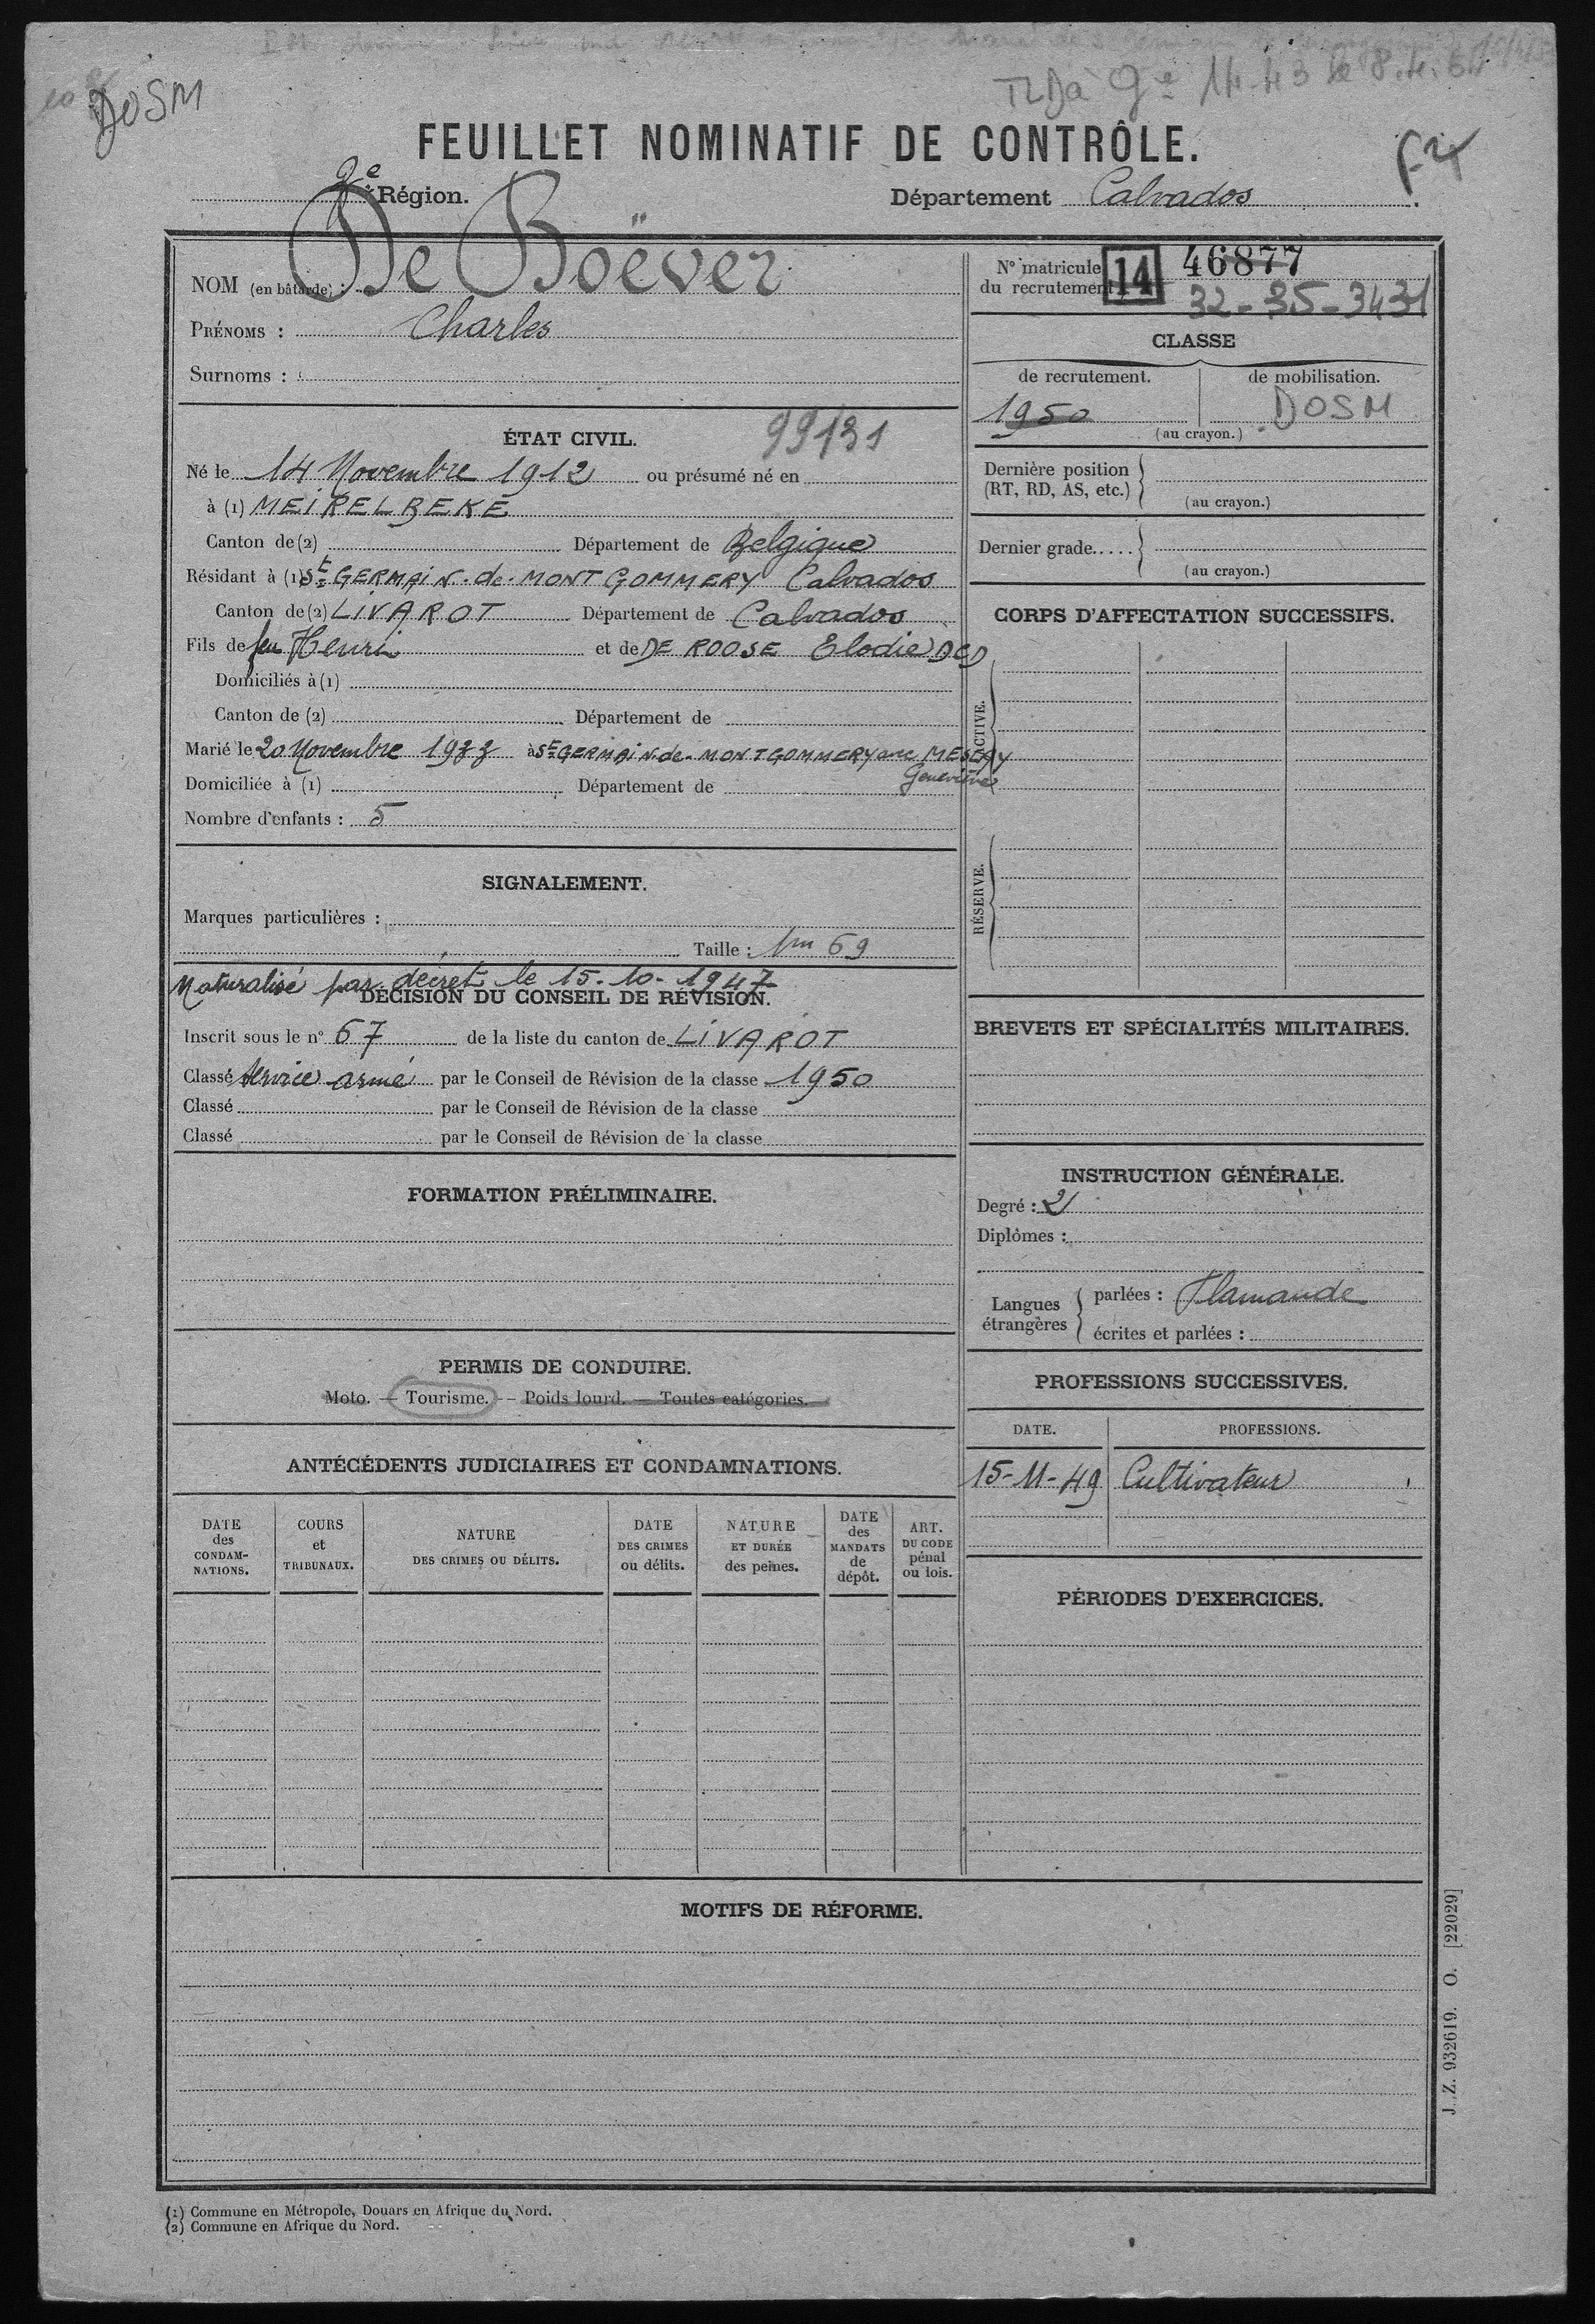 DOSM
14-43 le 8.4.54
FEUILLET NOMINATIF DE CONTRÔLE.
Région.
Département Calvados
NOM (en bâtarde) : De Boëver
PRÉNOMS : Charles
Surnoms :
N° matricule du recrutement 14 46877
32-35-3431
CLASSE
de recrutement. de mobilisation.
1950 DOSM
(au crayon.)
Dernière position (RT, RD, AS, etc.)
(au crayon.)
Dernier grade.....
(au crayon.)
ÉTAT CIVIL. 99131
Né le 14 Novembre 1912 ou présumé né en
à (1) MEIRELBEKE
Canton de (2) Département de Belgique
Résidant à (1) St GERMAIN-de-MONTGOMMERY Calvados
Canton de (2) LIVAROT Département de Calvados
Fils de feu Henri et de DE ROOSE Elodie DCD
Domiciliés à (1)
Canton de (2) Département de
Marié le 20 Novembre 1933 à St GERMAIN-de-MONTGOMMERY avec MESERAY
Geneviève
Domiciliée à (1) Département de
Nombre d'enfants : 5
SIGNALEMENT.
Marques particulières :
Taille : 1m 69
Naturalisé par décret le 15-10-1947
DÉCISION DU CONSEIL DE RÉVISION.
Inscrit sous le n° 67 de la liste du canton de LIVAROT
Classé service armé par le Conseil de Révision de la classe 1950
Classé par le Conseil de Révision de la classe
Classé par le Conseil de Révision de la classe
FORMATION PRÉLIMINAIRE.
PERMIS DE CONDUIRE.
Moto. — Tourisme. — Poids lourd. — Toutes catégories.
ANTÉCÉDENTS JUDICIAIRES ET CONDAMNATIONS.
DATE des CONDAMNATIONS.
COURS et TRIBUNAUX.
NATURE DES CRIMES OU DÉLITS.
DATE DES CRIMES ou délits.
NATURE ET DURÉE des peines.
DATE des MANDATS de dépôt.
ART. DU CODE pénal ou lois.
CORPS D'AFFECTATION SUCCESSIFS.
ACTIVE.
RÉSERVE.
BREVETS ET SPÉCIALITÉS MILITAIRES.
INSTRUCTION GÉNÉRALE.
Degré : 2
Diplômes :
Langues étrangères
parlées : Flamande
écrites et parlées :
PROFESSIONS SUCCESSIVES.
DATE. PROFESSIONS.
15-11-49 Cultivateur
PÉRIODES D'EXERCICES.
MOTIFS DE RÉFORME.
J. Z. 932619. O. [22029]
(1) Commune en Métropole, Douars en Afrique du Nord.
(2) Commune en Afrique du Nord.